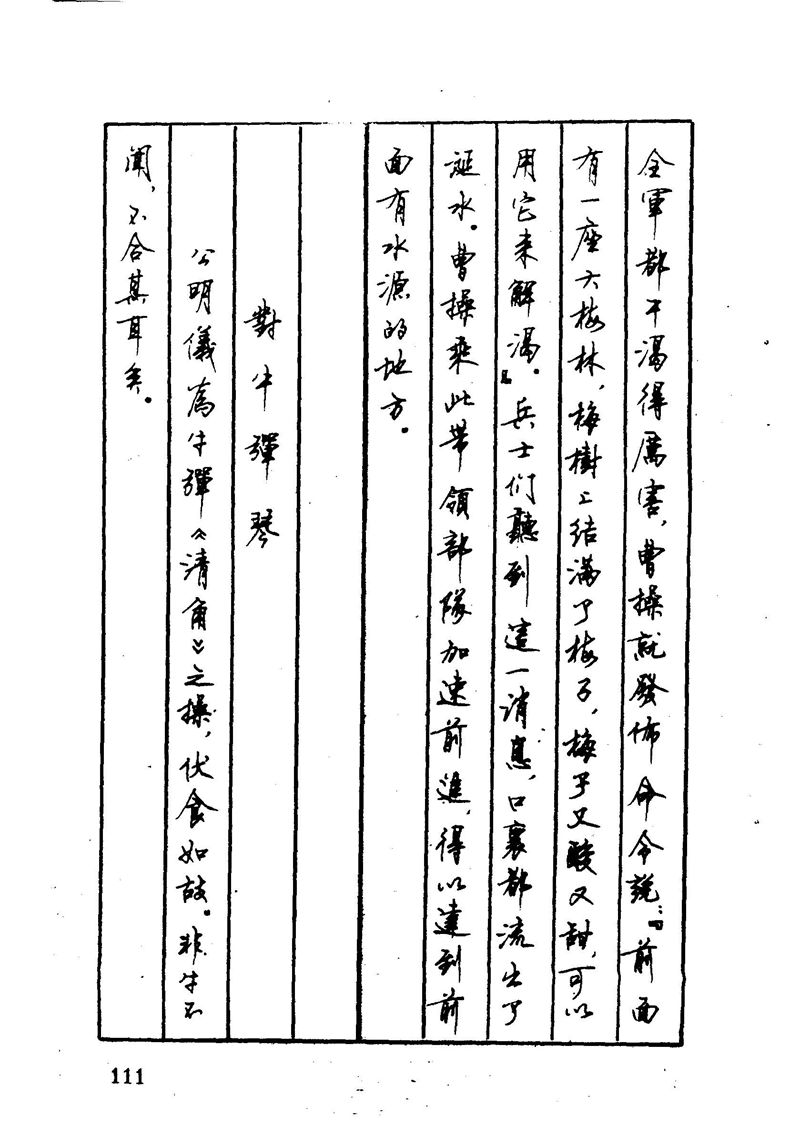 全軍都干渴得厲害，曹操就發佈命令說：『前面
有一座大梅林，梅樹上結滿了梅子，梅子又酸又甜，可以
用它来解渴。』兵士们聽到這一消息，口裏都流出了
涎水。曹操乘此带領部隊加速前進，得以達到前
面有水源的地方。
對牛彈琴
公明儀為牛彈《清角》之操，伏食如故。非牛不
聞，不合其耳矣。
111